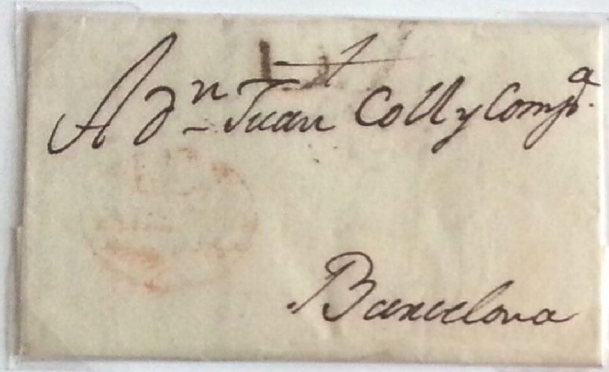 A Dn Juan Coll y Compa.
Barcelona